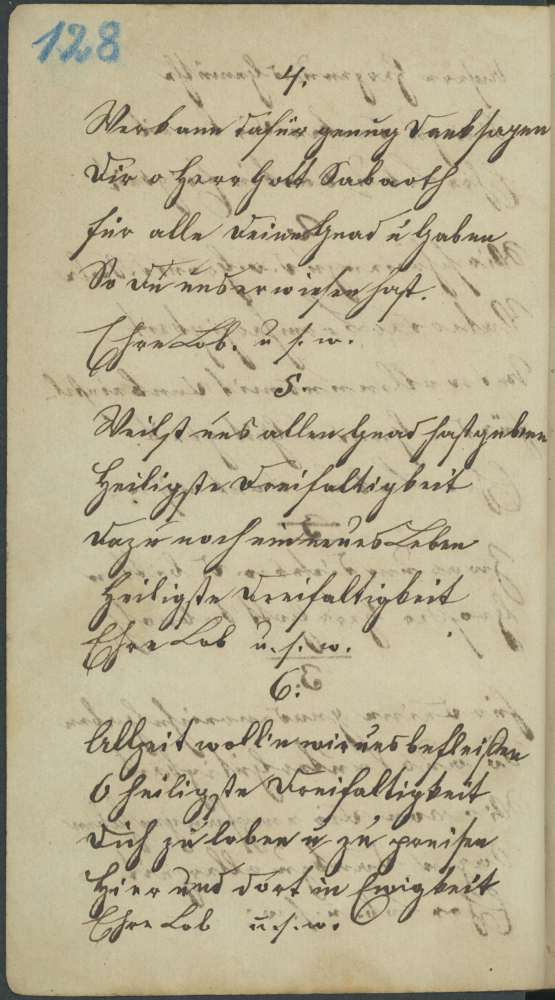 128
4.
Wer kann dafür genug Danksagen
Dir o Herr Gott Sabaoth
für alle deine Gnad u Gaben
So du uns erwiesen hast.
Ehre Lob. u. s. w.
5.
Weilst uns allen Gnad hast geben
Heiligste Dreifaltigkeit
Dazu noch ein neues Leben
Heiligste Dreifaltigkeit
Ehre Lob u. s. w.
6.
Allzeit woll'n wir uns befleißen
O heiligste Dreifaltigkeit
Dich zu loben u zu preisen
Hier und dort in Ewigkeit
Ehre Lob u. s. w.